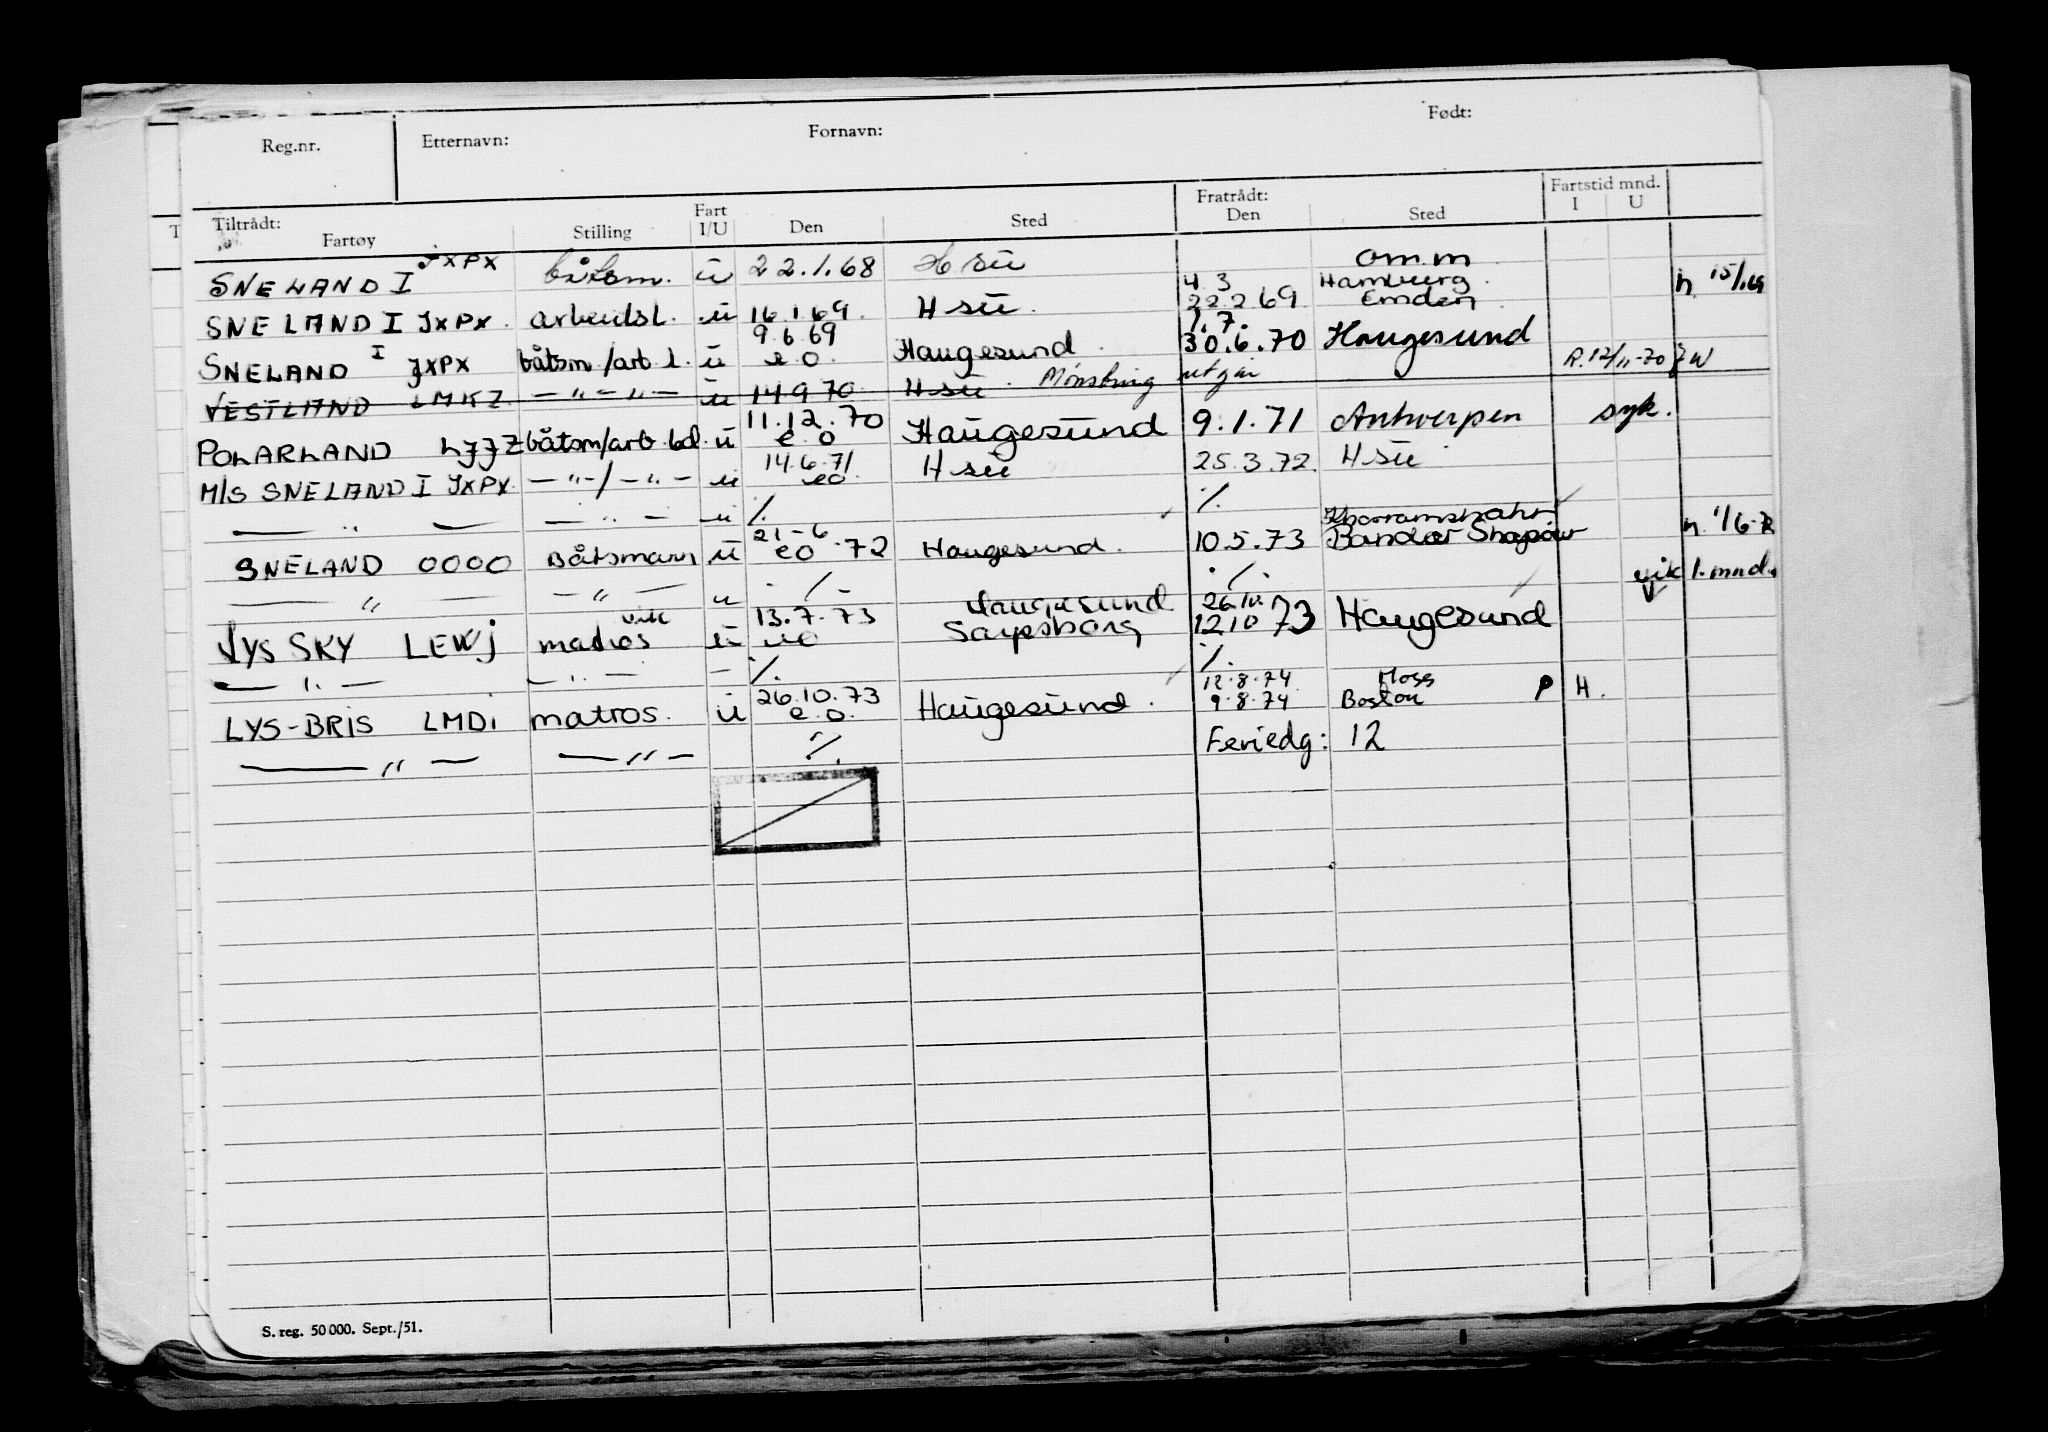 Reg.nr. Etternavn: Fornavn: Født:
Tiltrådt: Fartøy Stilling Fart I/U Den Sted Fratrådt: Den Sted Fartstid mnd. I U
SNELAND I JXPX båtsm. u 22.1.68 H su omm
4.3 Hamburg
SNELAND I JXPX. arbeidsl. u 16.1.69. H su. 22.2.69. Emden n. 15/1.69
9.6.69 1.7.
SNELAND I JXPX båtsm/arb.l. u e.o. Haugesund. 30.6.70 Haugesund
VESTLAND LMKZ. - " - " - u 14.9.70 H su. Mønstring utgår R.12/11-70 JW
11.12.70
POLARLAND LJJZ båtsm/arb.ld. u e.o Haugesund 9.1.71 Antwerpen syk.
14.6.71
M/S SNELAND I JXPX. - " - / - " - u eo. H su 25.3.72. H su
— " — — " — u % %
21-6 Khorramshahr
SNELAND OOOO Båtsmann u eo .72 Haugesund. 10.5.73 Bandar Shapour n. 1/6-72
— " — — " — u ./- ./. vik 1. mnd.
vik 13.7.73 Haugesund 26.10.
LYS SKY LEWJ matros u eo Sarpsborg 12.10 73 Haugesund
— " — — " — - %. %.
26.10.73 12.8.74 Moss
LYS-BRIS LMDI matros. u e.o. Haugesund. 9.8.74 Boston P H.
— " — — " — %. Feriedg: 12
S. reg. 50 000. Sept./51.